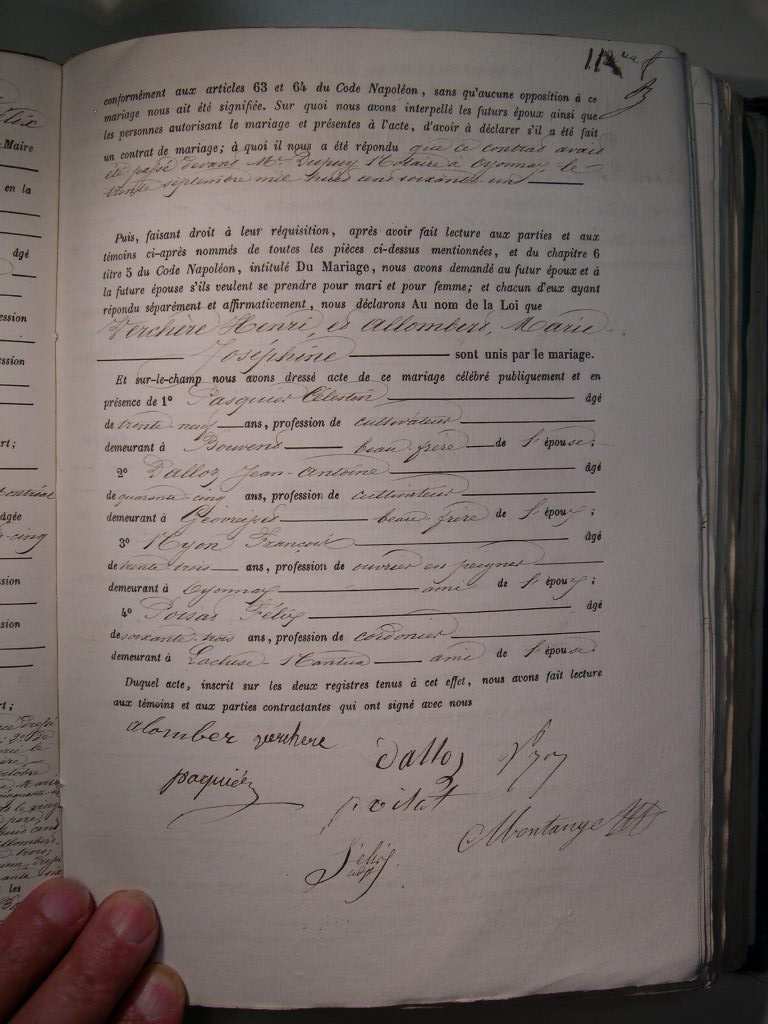 conformément aux articles 63 et 64 du Code Napoléon, sans qu'aucune opposition à ce
mariage nous ait été signifiée. Sur quoi nous avons interpellé les futurs époux ainsi que
les personnes autorisant le mariage et présentes à l'acte, d'avoir à déclarer s'il a été fait
un contrat de mariage; à quoi il nous a été répondu que ce contrat avait
été passé devant Me Dupuy Notaire à Oyonnax, le
trente septembre mil huit cent soixante un
Puis, faisant droit à leur réquisition, après avoir fait lecture aux parties et aux
témoins ci-après nommés de toutes les pièces ci-dessus mentionnées, et du chapitre 6
titre 5 du Code Napoléon, intitulé Du Mariage, nous avons demandé au futur époux et à
la future épouse s'ils veulent se prendre pour mari et pour femme; et chacun d'eux ayant
répondu séparément et affirmativement, nous déclarons Au nom de la Loi que
Verchère Henri, et Allombert, Marie
Joséphine sont unis par le mariage.
Et sur-le-champ nous avons dressé acte de ce mariage célébré publiquement et en
présence de 1° Pasquier Célestin âgé
de trente neuf ans, profession de cultivateur
demeurant à Bouvent beau frère de l'épouse;
2° Dalloz Jean-Antoine âgé
de quarante cinq ans, profession de cultivateur
demeurant à Géovreiset beau frère de l'époux;
3° Nyon François âgé
de trente trois ans, profession de ouvrier en peignes
demeurant à Oyonnax ami de l'époux;
4° Poisat Félix âgé
de soixante trois ans, profession de cordonier
demeurant à Lacluse Nantua ami de l'épouse
Duquel acte, inscrit sur les deux registres tenus à cet effet, nous avons fait lecture
aux témoins et aux parties contractantes qui ont signé avec nous
alomber verchere dalloz Nyon
paquiéz poisat
Montange
félix